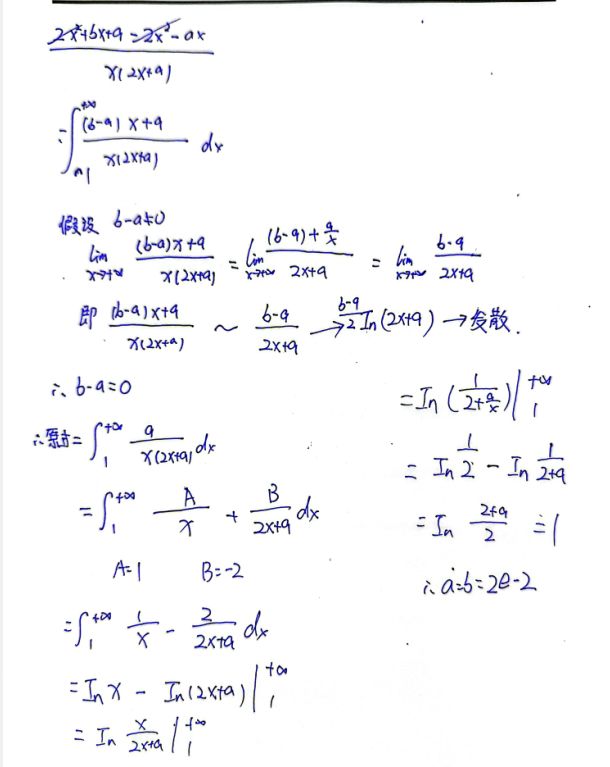 2x²+bx+a-2x²-ax / x(2x+a)
= ∫₁^{+∞} (b-a)x+a / x(2x+a) dx
假设 b-a≠0
lim_{x→+∞} (b-a)x+a / x(2x+a) = lim_{x→+∞} (b-a)+a/x / 2x+a = lim_{x→+∞} b-a / 2x+a
即 (b-a)x+a / x(2x+a) ~ b-a / 2x+a → b-a/2 In(2x+a) → 发散.
∴ b-a=0
∴原式= ∫₁^{+∞} a / x(2x+a) dx
= ∫₁^{+∞} A/x + B/2x+a dx
A=1 B=-2
= ∫₁^{+∞} 1/x - 2/2x+a dx
= In x - In(2x+a) |₁^{+∞}
= In x/2x+a |₁^{+∞}
= In (1 / 2+a/x) |₁^{+∞}
= In 1/2 - In 1/2+a
= In 2+a/2 = 1
∴ a=b=2e-2